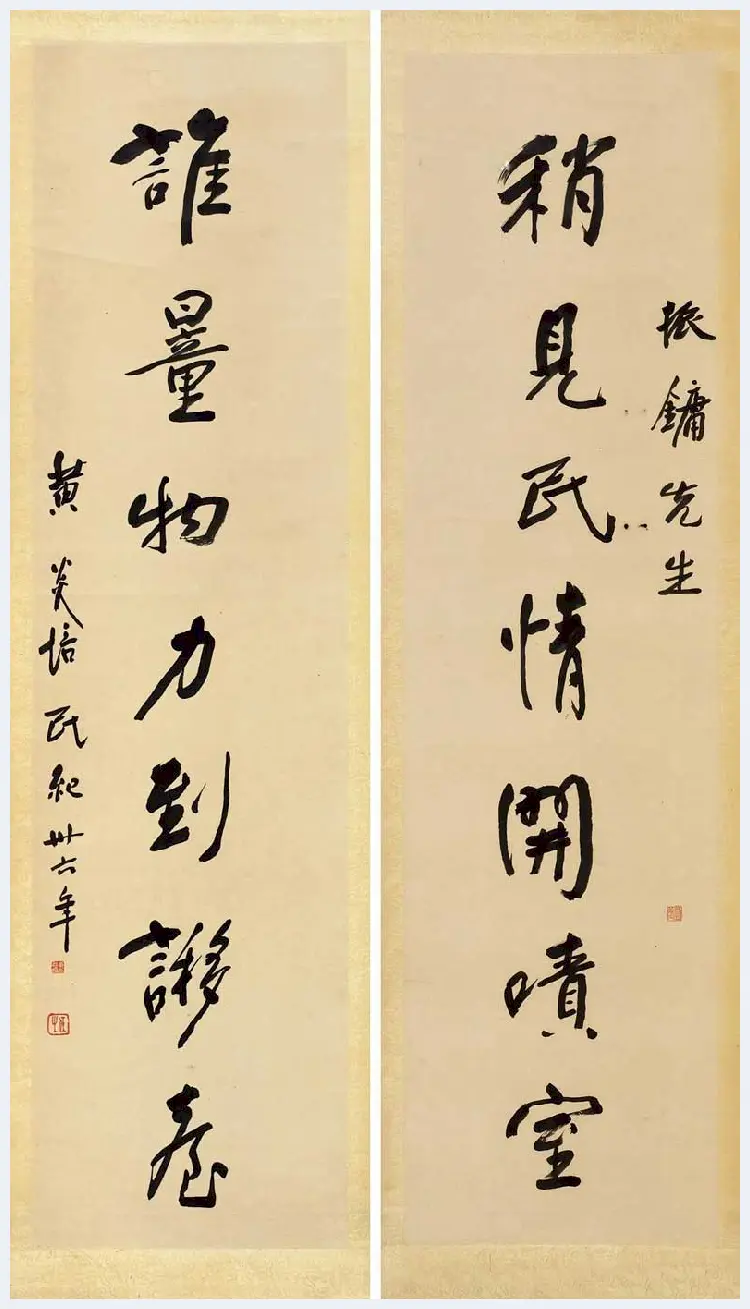 振鏞先生
稍見民情開嘖室
誰量物力到謻臺
黃炎培民紀卅六年